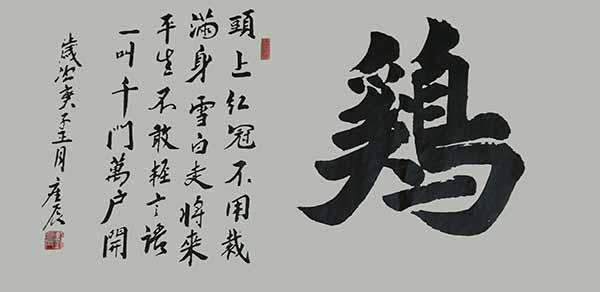 鷄
頭上紅冠不用裁
滿身雪白走將來
平生不敢輕言語
一叫千門萬户開
歲次 正月